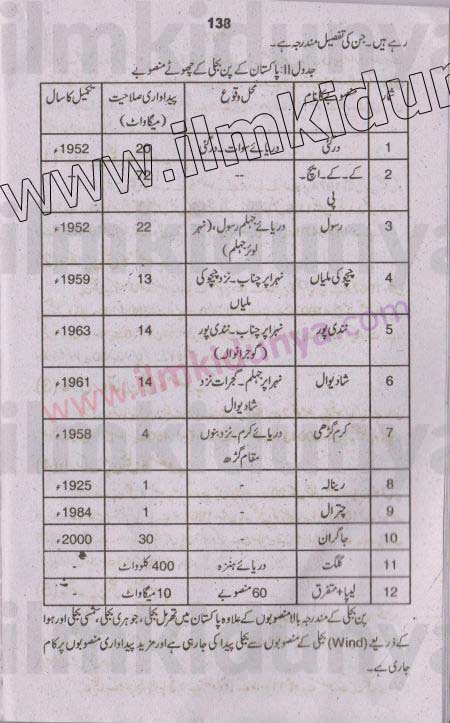 138
رہے ہیں۔ جن کی تفصیل مندرجہ ہے۔
جدول II: پاکستان کے پن بجلی کے چھوٹے منصوبے
شمار منصوبے کا نام محل وقوع پیداواری صلاحیت (میگاواٹ) تکمیل کا سال
1 درگئی دریائے سوات۔ درگئی 20 1952ء
2 کے۔ کے۔ ایچ۔ پی --
3 رسول دریائے جہلم رسول، (نہر لوئر جہلم) 22 1952ء
4 چیچو کی ملیاں نہر اپر چناب۔ نزد چیچو کی ملیاں 13 1959ء
5 نندی پور نہر اپر چناب۔ نندی پور (گوجرانوالہ) 14 1963ء
6 شادیوال نہر اپر جہلم۔ گجرات نزد شادیوال 14 1961ء
7 کرم گڑھی دریائے کرم۔ نزد بنوں مقام گڑھ 4 1958ء
8 رینالہ - 1 1925ء
9 چترال - 1 1984ء
10 جاگران - 30 2000ء
11 گلگت دریائے ہنزہ 400 کلوواٹ -
12 لیپا + متفرق 60 منصوبے 10 میگاواٹ -
پن بجلی کے مندرجہ بالا منصوبوں کے علاوہ پاکستان میں تھرمل بجلی، جوہری بجلی، شمسی بجلی اور ہوا
کے ذریعے (Wind) بجلی کے منصوبوں سے بجلی پیدا کی جا رہی ہے اور مزید پیداواری منصوبوں پر کام
جاری ہے۔
www.ilmkidunya.com